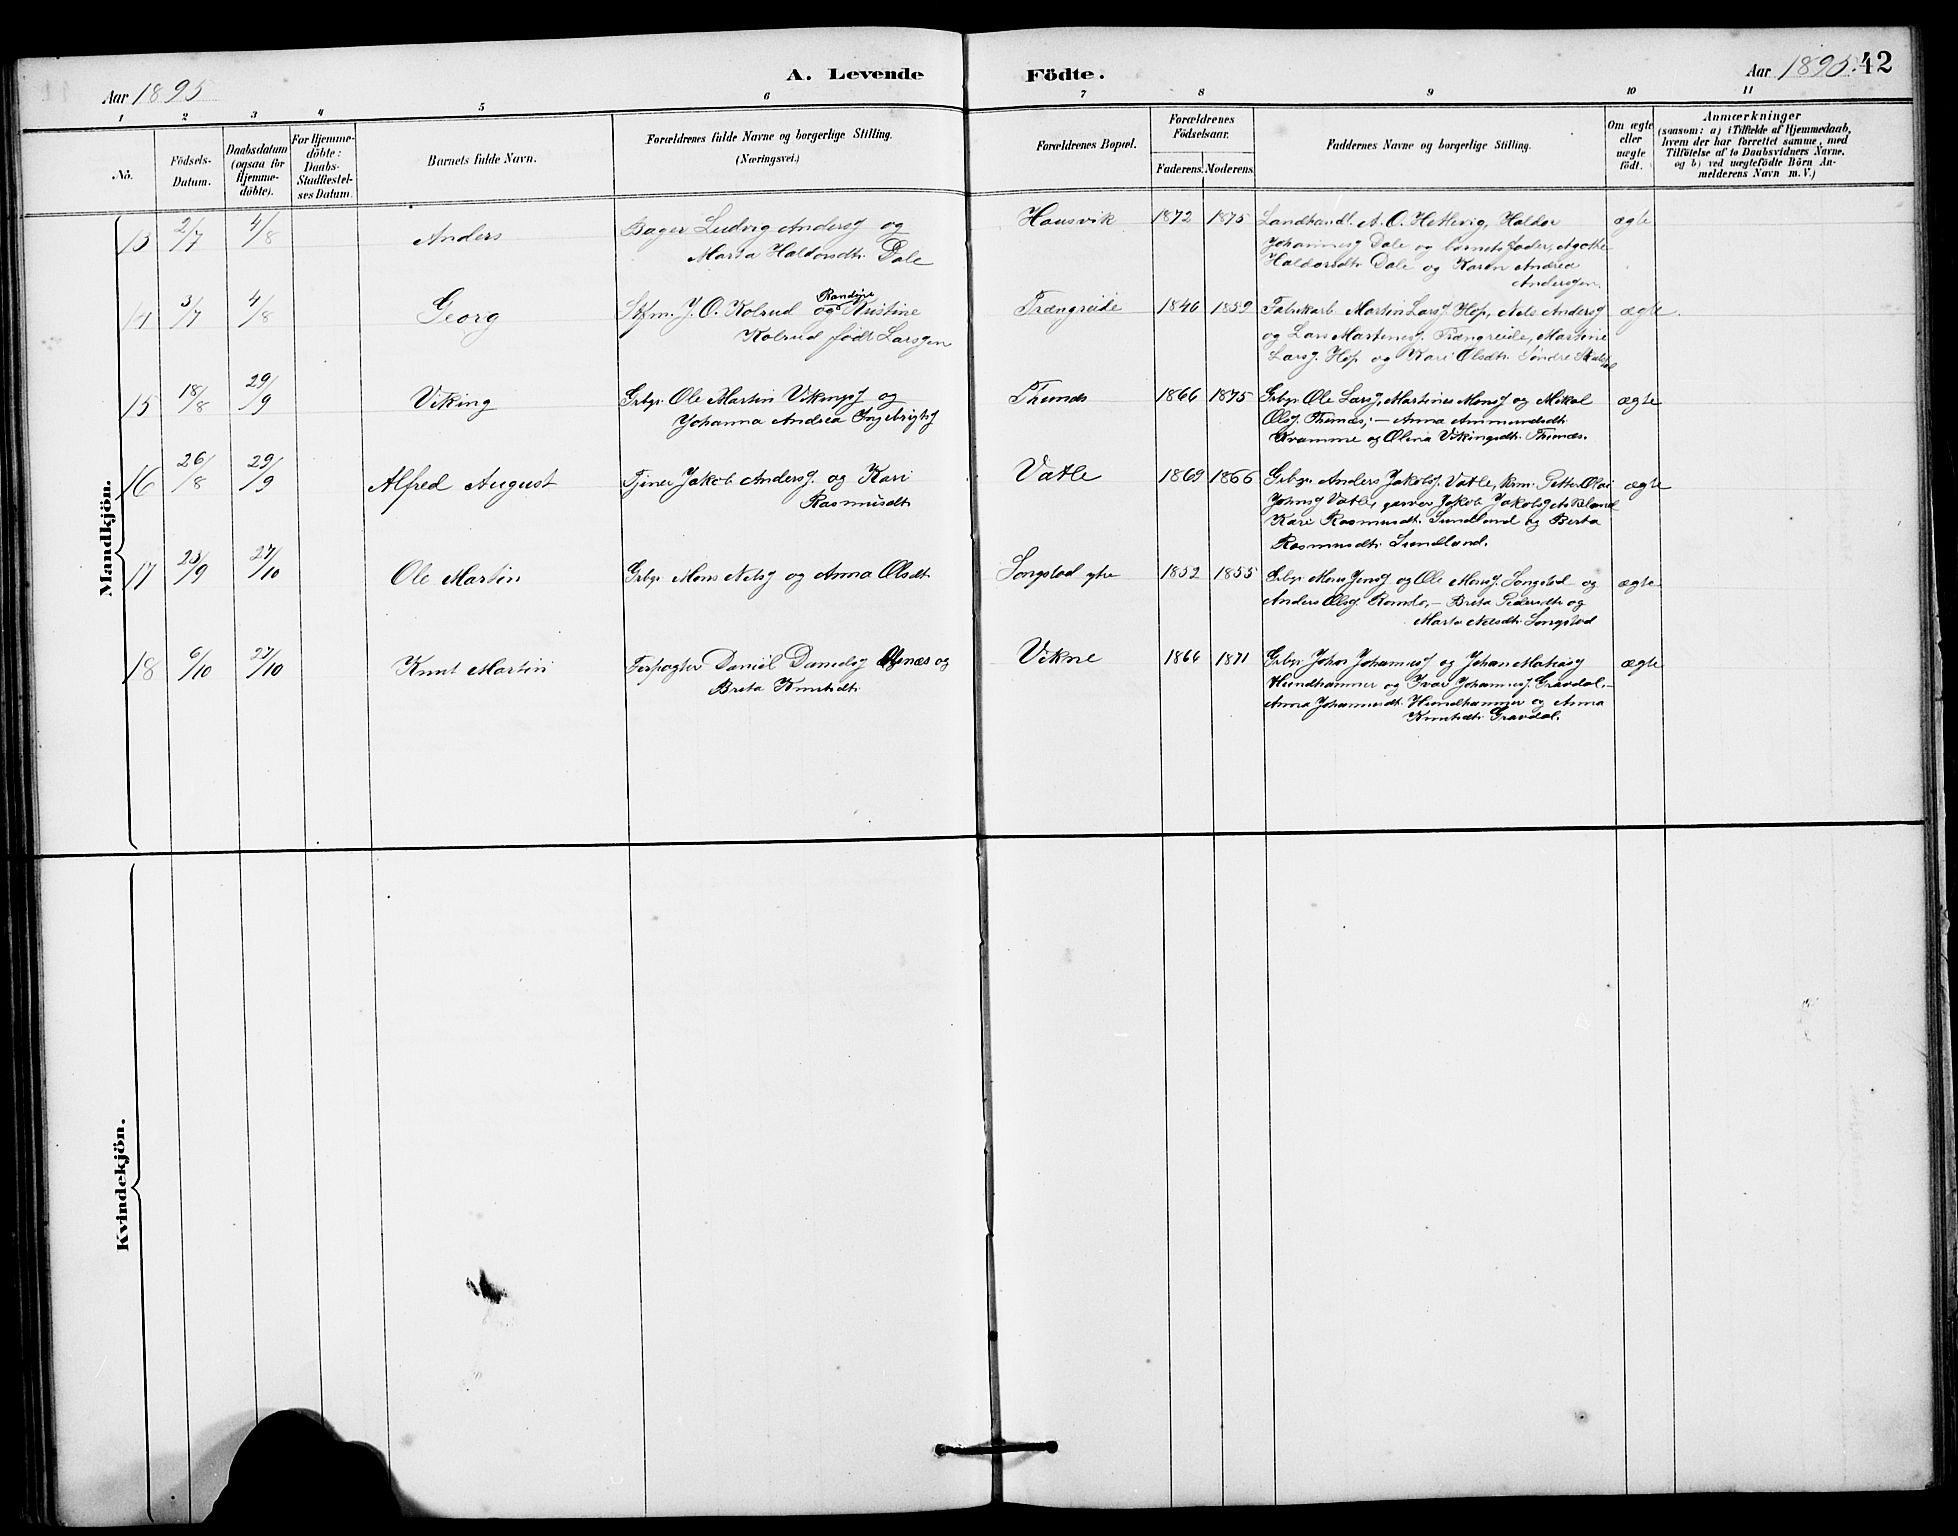 Aar 1895
A. Levende
Födte.
Aar 1895.
42
1 2 3 4 5 6 7 8 9 10 11
No.
Födsels-
Datum.
Daabsdatum
(ogsaa for
Hjemme-
döbte).
For Hjemme-
döbte:
Daabs-
Stadfæstel-
ses Datum.
Barnets fulde Navn.
Forældrenes fulde Navne og borgerlige Stilling.
(Næringsvei.)
Forældrenes Bopæl.
Forældrenes
Födselsaar.
Faderens. Moderens.
Faddernes Navne og borgerlige Stilling.
Om ægte
eller
uægte
födt.
Anmærkninger
(saasom: a) i Tilfælde af Hjemmedaab,
hvem der har forrettet samme, med
Tilföielse af to Daabsvidners Navne.
og b) ved uægtefödte Börn An-
melderens Navn m. V.)
Mandkjön.
13 2/7 4/8 Anders
Bager Ludvig Andersj og
Marta Haldorsdtr. Dale
Hausvik 1872 1875
Landhandl. A. O. Hetlevig, Haldor
Johannesj Dale og barnets fader, Agathe
Haldorsdtr. Dale og Karen Andrea
Andersgen.
ægte
14 3/7 4/8 Georg
J. O. Kolrud og Randine Kristine
Kolrud født Larsgen
Trængreide 1846 1859
Fabrikarb. Martin Larsj Hop, Nels Andersj
og Lars Martinesj. Trængreide, Martine
Larsj. Hop og Kari Olsdtr. Søndre
ægte.
15 18/8 29/9 Viking
Grbgr. Ole Martin Vikingsj og
Johanna Andrea Ingebrigtsj
1866 1875
Grbgr. Ole Larsj, Martines Monsj og Mikal
Olsj. Thunæs, – Anna Ammundsdtr
Kvamme og Olina Vikingsdtr. Thunæs.
ægte
16 26/8 29/9 Alfred August
Tjener Jakob Andersj. og Kari
Rasmusdtr.
Vatle 1869 1866
Grbgr. Anders Jakobsj. Vatle, Petter Olai
Johnsj Vatle, garver Jakob Jakobsj
Kari Rasmusdtr. Sundland og Berta
Rasmusdtr. Sundland.
ægte
17 23/9 27/10 Ole Martin
Grbgr. Mons Nelsj og Anna Olsdtr.
Songstad ytre 1852 1855
Grbgr. Mons Jensj og Ole Monsj. Songstad og
Anders Olsj Romslo, – Brita Pedersdtr og
Marta Nelsdtr. Songstad
ægte
18 6/10 27/10 Knut Martin
Daniel Danielsj og
Brita Knutsdtr.
Vikne 1866 1871
Grbgr. Johs Johannesj og Johan Matiasj
Hundhammer og Ivar Johannesj. Gravdal, –
Anna Johannesdtr. Hundhammer og Anna
Knutsdtr. Gravdal.
ægte
Kvindekjön.